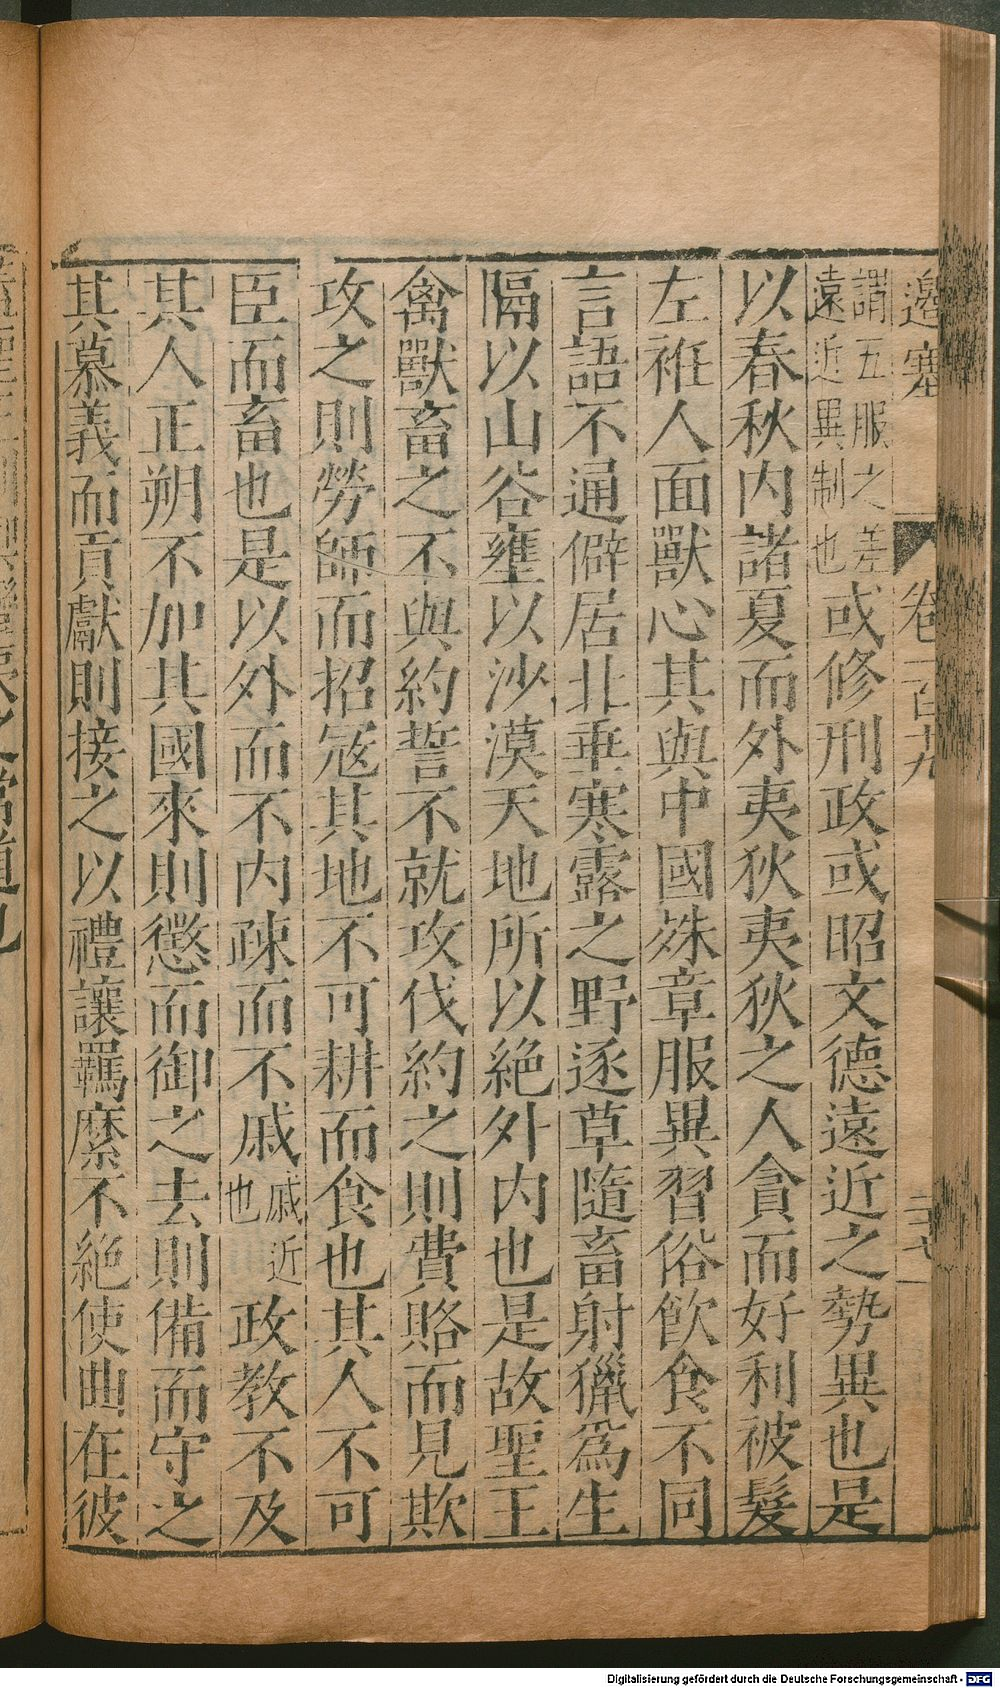 邊塞 卷一百十九 二十七
謂五服之差遠近異制也或修刑政或昭文德遠近之勢異也是
以春秋内諸夏而外夷狄夷狄之人貪而好利被髮
左袵人面獸心其與中國殊章服異習俗飲食不同
言語不通僻居北垂寒露之野逐草隨畜射獵爲生
隔以山谷壅以沙漠天地所以絶外内也是故聖王
禽獸畜之不與約誓不就攻伐約之則費賂而見欺
攻之則勞師而招冦其地不可耕而食也其人不可
臣而畜也是以外而不内疎而不戚戚近也政教不及
其人正朔不加其國來則懲而御之去則備而守之
其慕義而貢獻則接之以禮讓羈縻不絶使曲在彼
之常道也
Digitalisierung gefördert durch die Deutsche Forschungsgemeinschaft - DFG